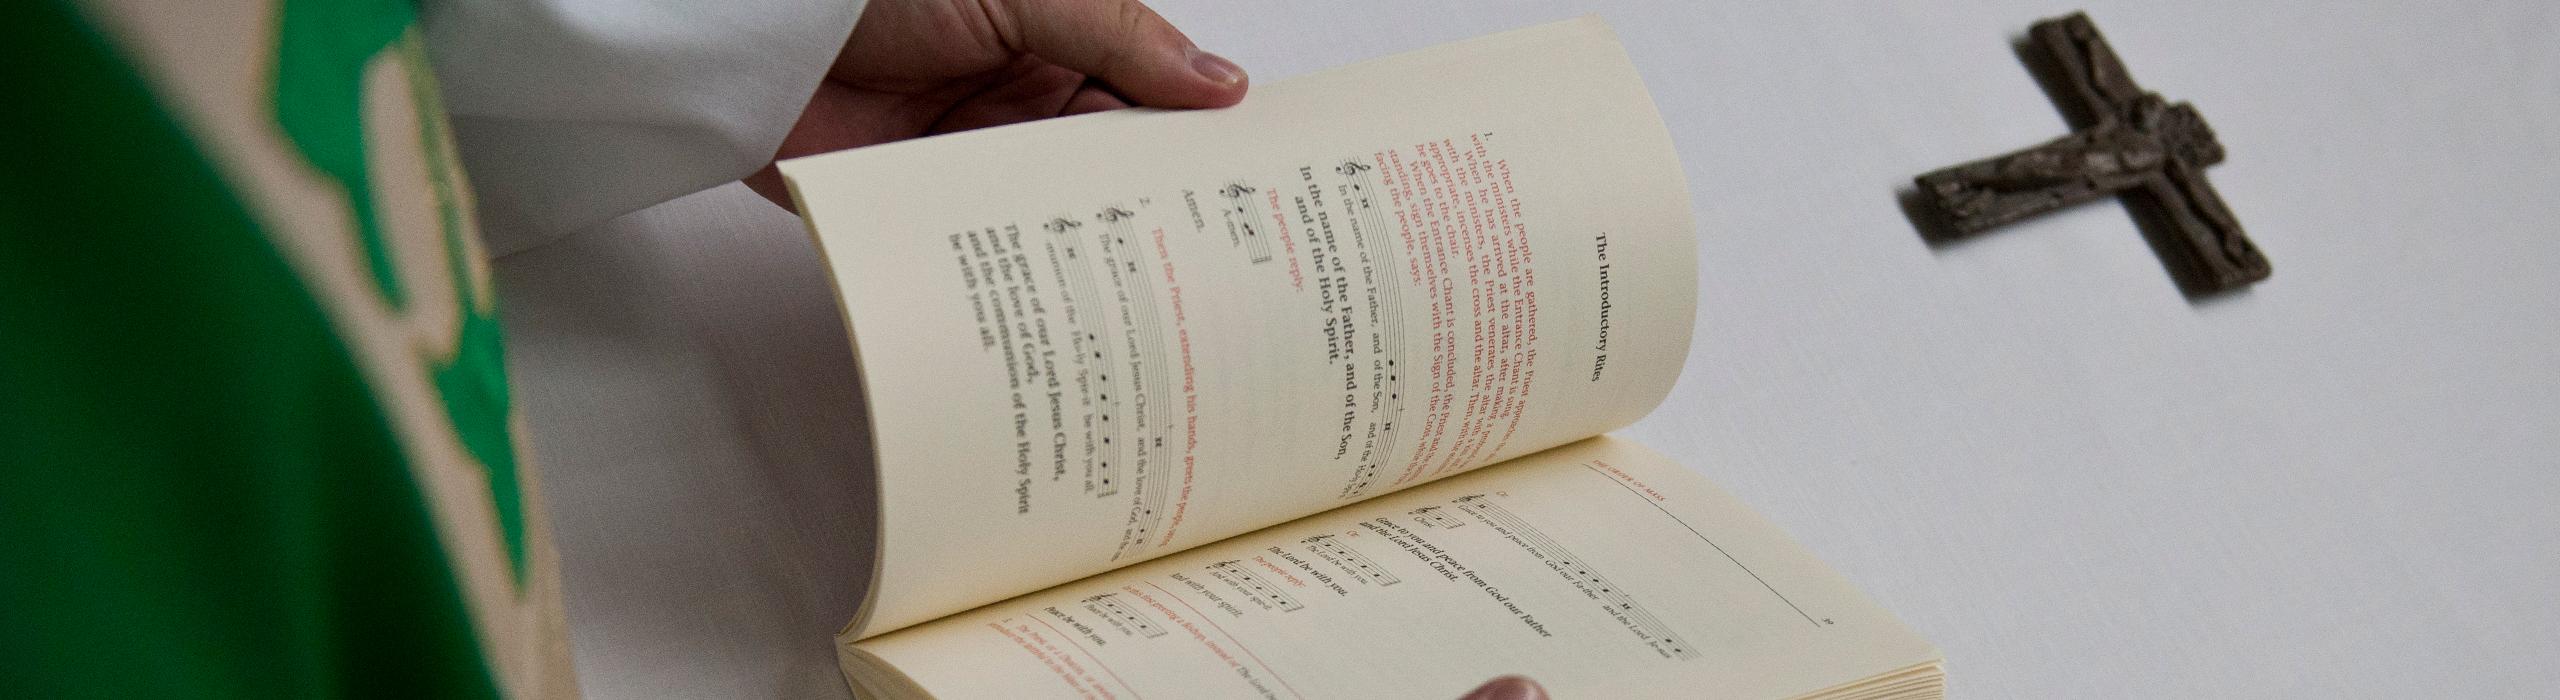 The Introductory Rites
1. When the people are gathered, the Priest
with the ministers while the Entrance Chant is sung.
When he has arrived at the altar, after making a
with the ministers, the Priest venerates the altar with a
appropriate, incenses the cross and the altar. Then, with the
he goes to the chair.
When the Entrance Chant is concluded, the Priest and the
standing, sign themselves with the Sign of the Cross, while the
facing the people, says:
In the name of the Father, and of the Son, and of the Holy
In the name of the Father, and of the Son,
and of the Holy Spirit.
The people reply:
A-men.
Amen.
2. Then the Priest, extending his hands, greets the people,
The grace of our Lord Jesus Christ, and the love of God, and the
munion of the Ho-ly Spir-it be with you all.
The grace of our Lord Jesus Christ,
and the love of God,
and the communion of the Holy Spirit
be with you all.
THE ORDER OF MASS
Or:
Grace to you and peace from God our Fa-ther and the Lord Je-sus
Christ.
Grace to you and peace from God our Father
and the Lord Jesus Christ.
Or:
The Lord be with you.
The Lord be with you.
The people reply:
And with your spir-it.
And with your spirit.
In this first greeting a Bishop, instead of The Lord be
Peace be with you.
Peace be with you.
3. The Priest, or a Deacon, or another